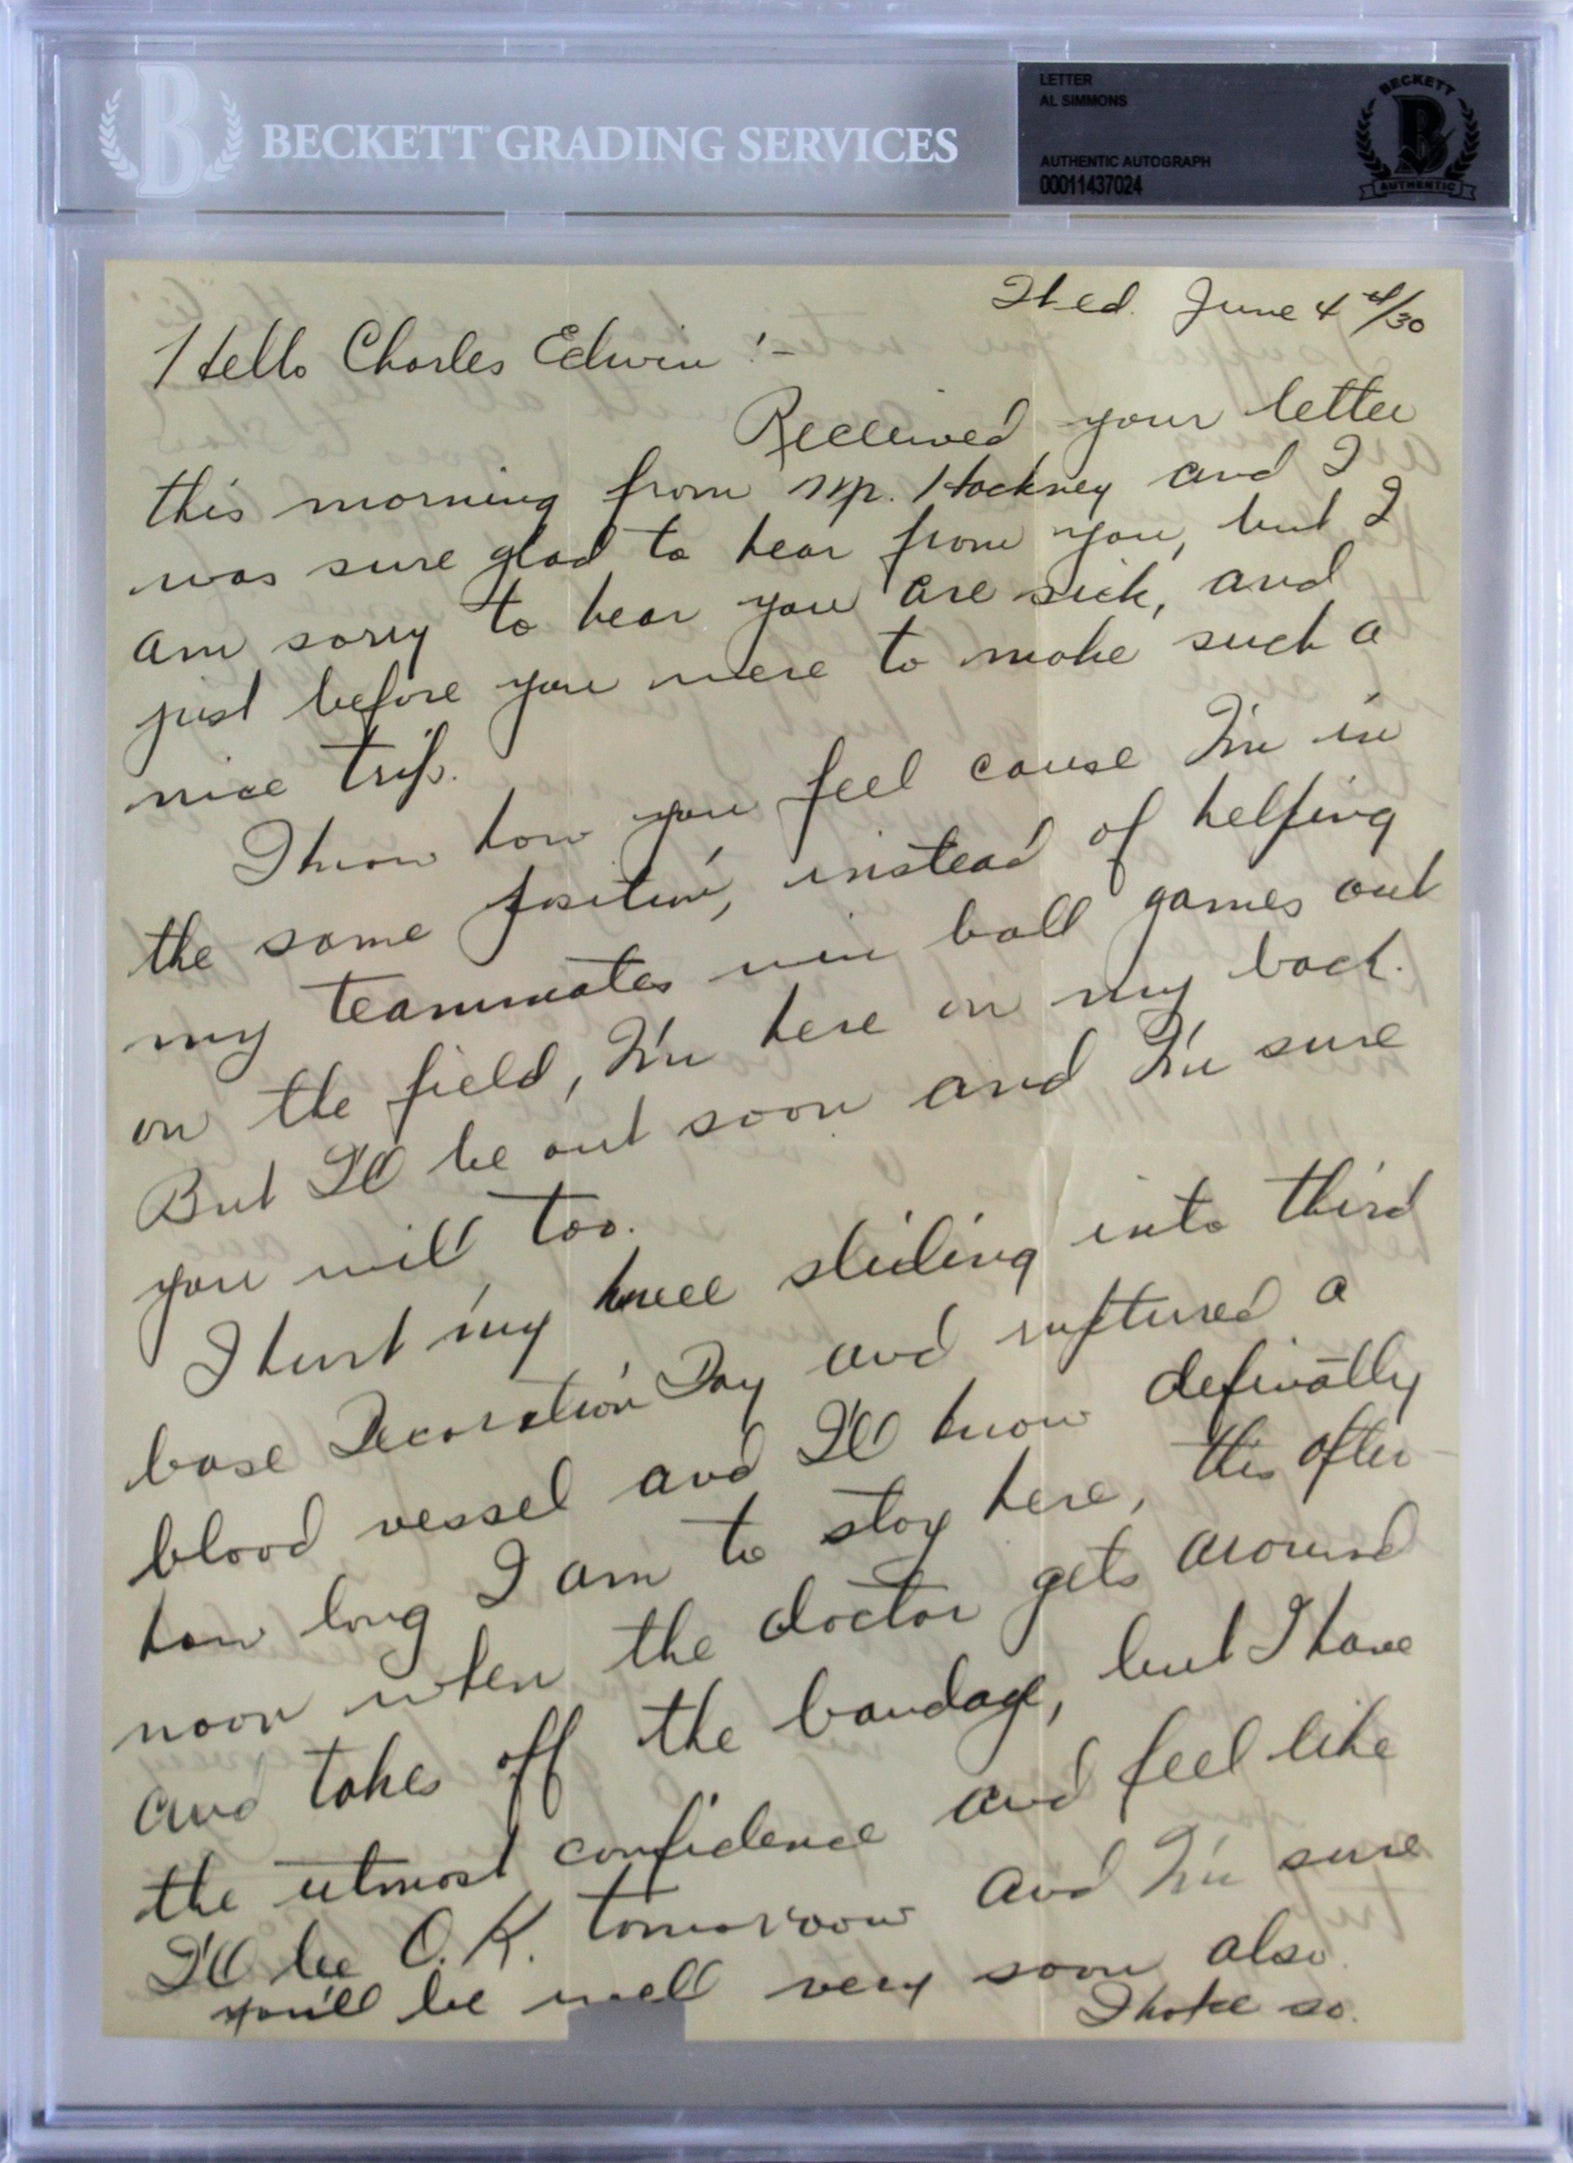 BECKETT GRADING SERVICES
LETTER
AL SIMMONS
AUTHENTIC AUTOGRAPH
00011437024
BECKETT
B
AUTHENTIC
Wed. June 4th/30
Hello Charles Edwin :-
Received your letter
this morning from Mr. Hockney and I
was sure glad to hear from you, but I
am sorry to hear you are sick, and
just before you were to make such a
nice trip.
I know how you feel cause I'm in
the same position, instead of helping
my teammates win ball games out
on the field, I'm here on my back.
But I'll be out soon and I'm sure
you will too.
I hurt my knee sliding into third
base Decoration Day and ruptured a
blood vessel and I'll know definatlly
how long I am to stay here, this after-
noon when the doctor gets around
and takes off the bandage, but I have
the utmost confidence and feel like
I'll be O.K. tomorroow and I'm sure
you'll be well very soon also.
I hope so.